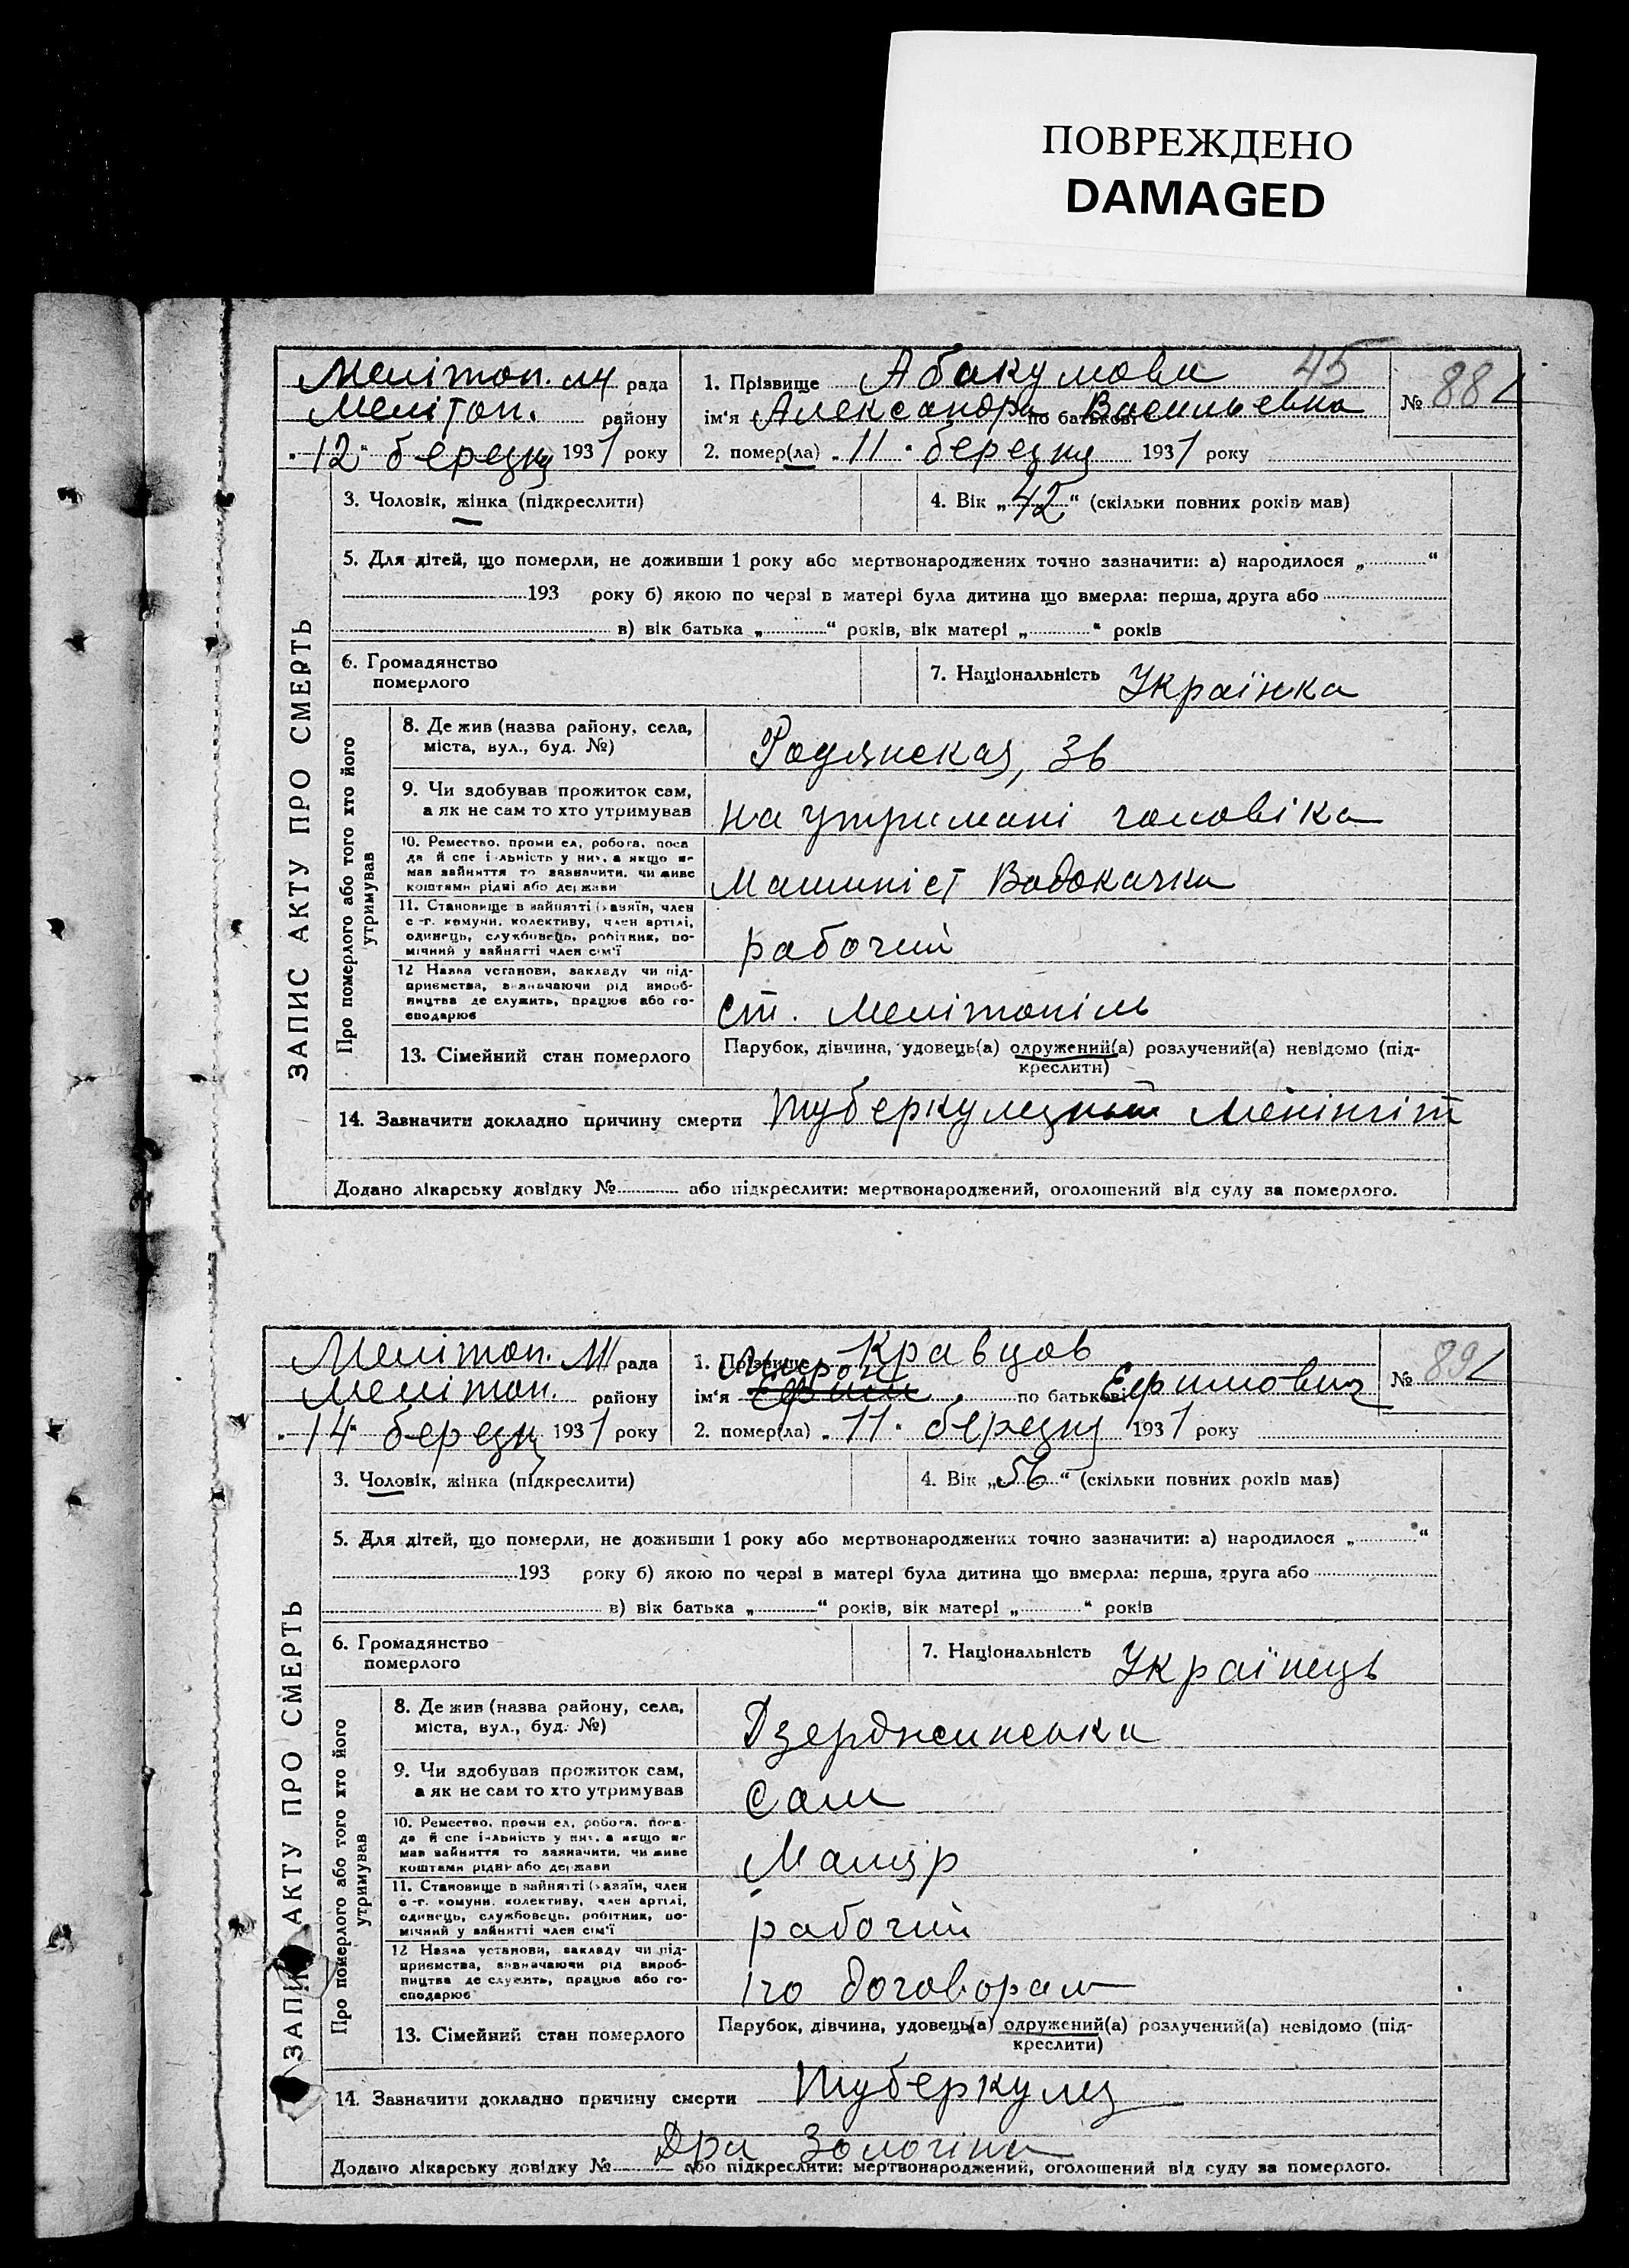 ПОВРЕЖДЕНО
DAMAGED
Мелітоп. рада
Мелітоп. району
"12" березня 1931 року
1. Прізвище Абакумова 45
ім'я Александра по батькові Васильевна
№ 88
2. помер(ла) "11" березня 1931 року
ЗАПИС АКТУ ПРО СМЕРТЬ
3. Чоловік, жінка (підкреслити)
4. Вік „42“ (скільки повних років мав)
5. Для дітей, що померли, не доживши 1 року або мертвонароджених точно зазначити: а) народилося „ “
193 року б) якою по черзі в матері була дитина що вмерла: перша, друга або
в) вік батька „ “ років, вік матері „ “ років
6. Громадянство
померлого
7. Національність Українка
Про померлого або того хто його
утримував
8. Де жив (назва району, села,
міста, вул., буд. №)
Родянская, 36
9. Чи здобував прожиток сам,
а як не сам то хто утримував
на утримані чоловіка
10. Ремество, проми ел, робота, поса
да й спе і льність у них, а якщо не
мав зайняття то зазначити, чи живе
коштами рідні або держави
Машиніст Водокачки
11. Становище в зайнятті (хазяїн, член
с-г. комуни, колективу, член артілі,
одинець, службовець, робітник, по-
мічний у зайнятті член сім'ї
рабочий
12 Назва установи, закладу чи під-
приємства, зазначаючи рід вироб-
ництва де служить, працює або го-
сподарює
ст. Мелітопіль
13. Сімейний стан померлого
Парубок, дівчина, удовець(а) одружений(а) розлучений(а) невідомо (під-
креслити)
14. Зазначити докладно причину смерти Менінгіт
Додано лікарську довідку № або підкреслити: мертвонароджений, оголошений від суду за померлого.
Мелітоп. рада
Мелітоп. району
"14" березня 1931 року
1. Прізвище Кравцов
ім'я Мирон Ефим по батькові Ефимович
№ 89
2. помер(ла) "11" березня 1931 року
ЗАПИС АКТУ ПРО СМЕРТЬ
3. Чоловік, жінка (підкреслити)
4. Вік „56“ (скільки повних років мав)
5. Для дітей, що померли, не доживши 1 року або мертвонароджених точно зазначити: а) народилося „ “
193 року б) якою по черзі в матері була дитина що вмерла: перша, друга або
в) вік батька „ “ років, вік матері „ “ років
6. Громадянство
померлого
7. Національність Українець
Про померлого або того хто його
утримував
8. Де жив (назва району, села,
міста, вул., буд. №)
Дзержинська
9. Чи здобував прожиток сам,
а як не сам то хто утримував
Сам
10. Ремество, проми ел, робота, поса-
да й спе і льність у них, а якщо не
мав зайняття то зазначити, чи живе
коштами рідні або держави
Маляр
11. Становище в зайнятті (хазяїн, член
с-г. комуни, колективу, член артілі,
одинець, службовець, робітник, по-
мічний у зайнятті член сім'ї
рабочий
12 Назва установи, закладу чи під-
приємства, зазначаючи рід вироб-
ництва де служить, працює або го-
сподарює
по договорам
13. Сімейний стан померлого
Парубок, дівчина, удовець(а) одружений(а) розлучений(а) невідомо (під-
креслити)
14. Зазначити докладно причину смерти туберкульз
Дра
Додано лікарську довідку № або підкреслити: мертвонароджений, оголошений від суду за померлого.